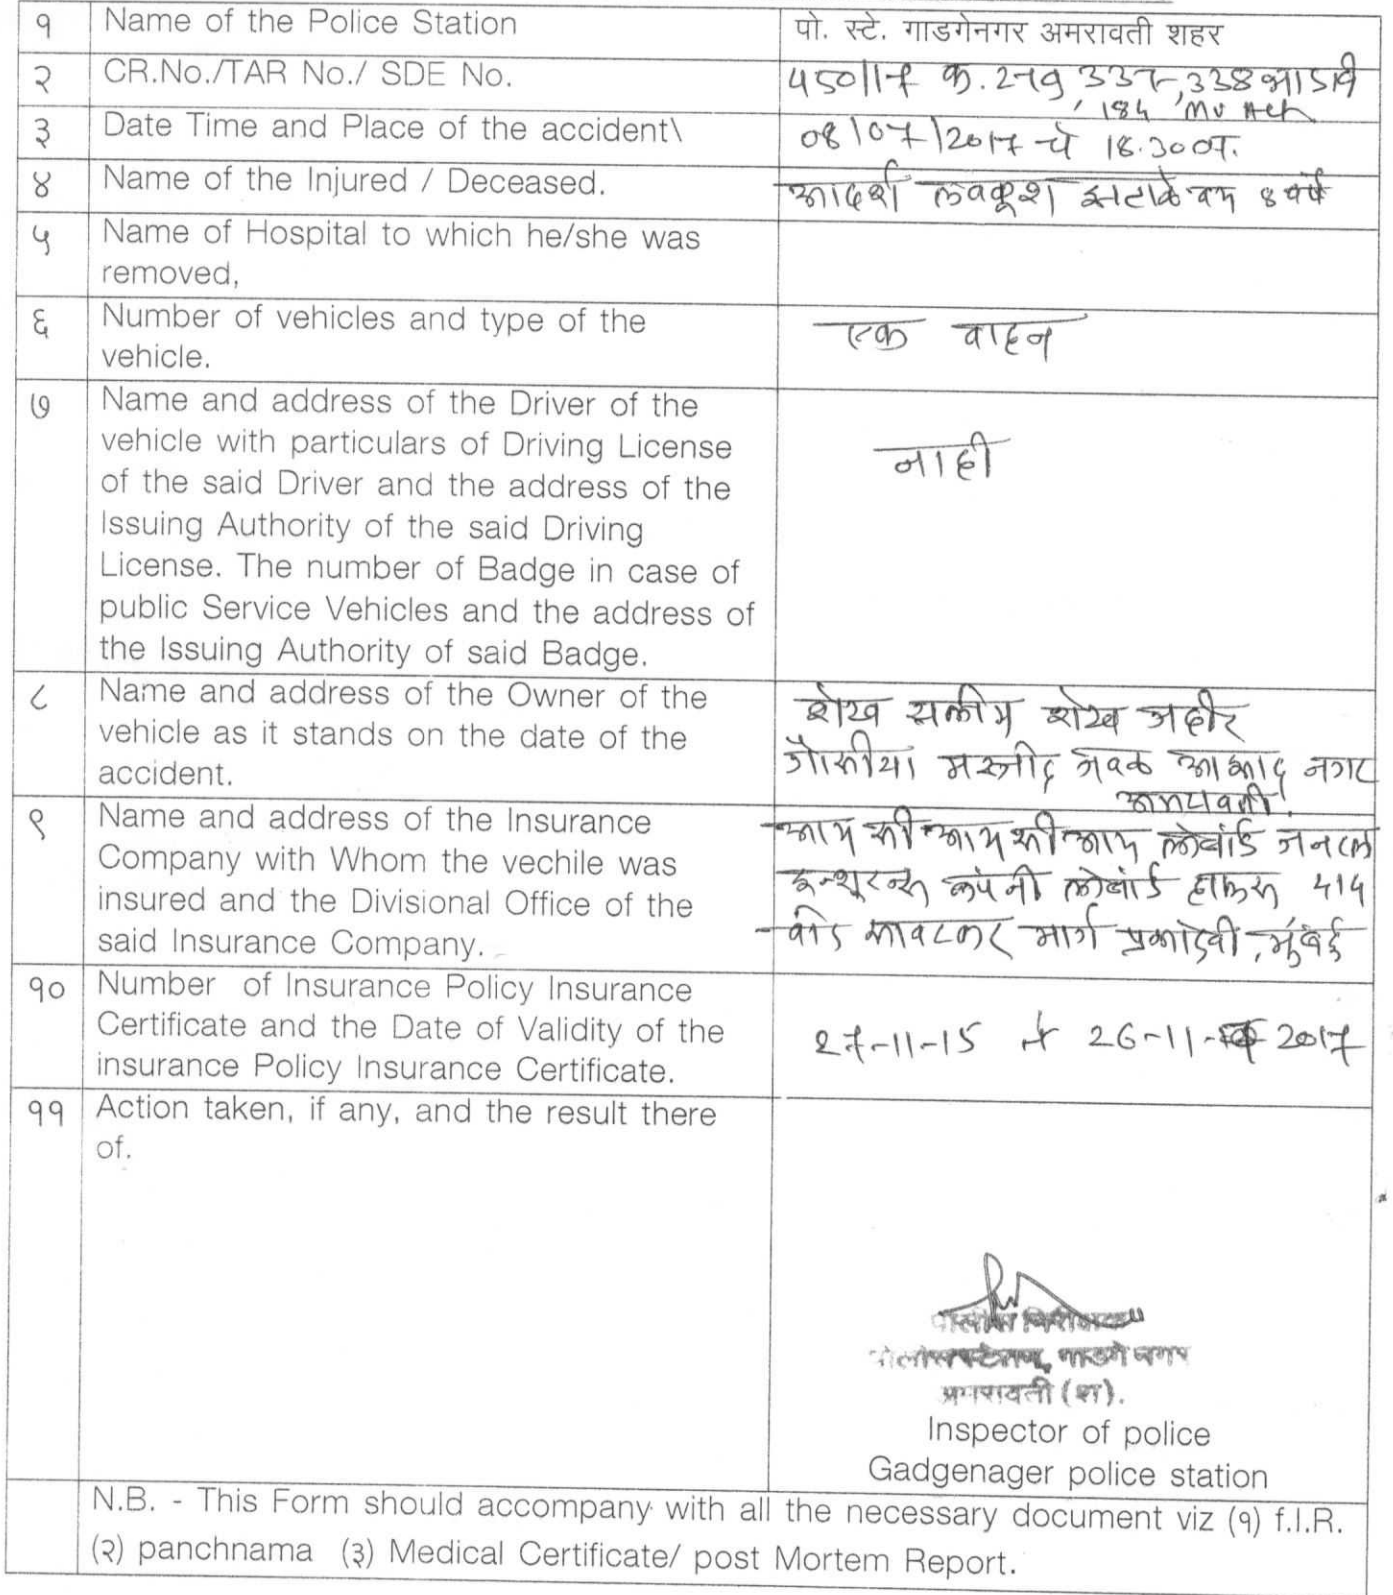 १ Name of the Police Station पो. स्टे. गाडगेनगर अमरावती शहर
२ CR.No./TAR No./ SDE No. 450/17 क. 279, 337, 338 भादवि
, 184 MV Act
३ Date Time and Place of the accident\ 08/07/2017 चे 18.30 वा.
४ Name of the Injured / Deceased. आदर्श लवकुश वय 8 वर्षे
५ Name of Hospital to which he/she was
removed,
६ Number of vehicles and type of the एक वाहन
vehicle.
७ Name and address of the Driver of the
vehicle with particulars of Driving License नाही
of the said Driver and the address of the
Issuing Authority of the said Driving
License. The number of Badge in case of
public Service Vehicles and the address of
the Issuing Authority of said Badge.
८ Name and address of the Owner of the शेख सलीम शेख जहीर
vehicle as it stands on the date of the गौसीया मस्जीद जवळ आझाद नगर
accident. अमरावती.
९ Name and address of the Insurance आय सी आय सी आय लोबांर्ड जनरल
Company with Whom the vechile was इन्शूरन्स कंपनी लोबांर्ड हाऊस 414
insured and the Divisional Office of the वीर सावरकर मार्ग प्रभादेवी, मुंबई
said Insurance Company.
१० Number of Insurance Policy Insurance
Certificate and the Date of Validity of the 27-11-15 ते 26-11-2017
insurance Policy Insurance Certificate.
११ Action taken, if any, and the result there
of.
पोलीस निरीक्षक
पोलीस स्टेशन, गाडगे नगर
अमरावती (श).
Inspector of police
Gadgenager police station
N.B. - This Form should accompany with all the necessary document viz (१) f.I.R.
(२) panchnama (३) Medical Certificate/ post Mortem Report.